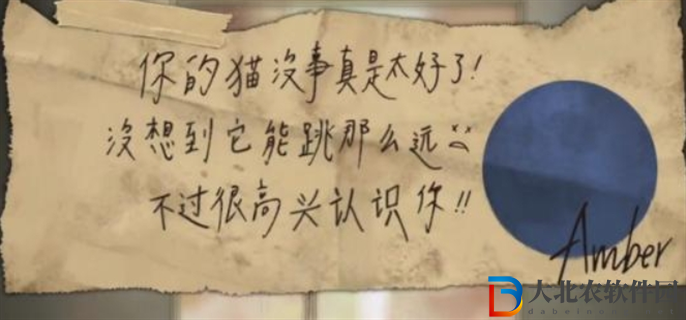 你的猫没事真是太好了！
没想到它能跳那么远
不过很高兴认识你!!
Amber
大北农软件园